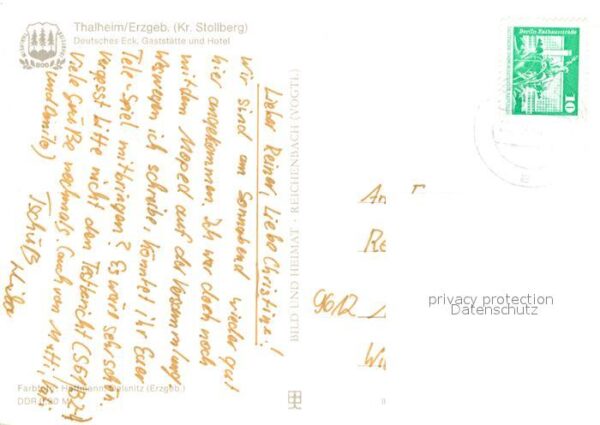 Thalheim/Erzgeb. (Kr. Stollberg)
Deutsches Eck, Gaststätte und Hotel
Lieber Reiner, Liebe Christine!
Wir sind am Sonnabend wieder gut
hier angekommen. Ich war doch noch
mit dem Moped auf der Versammlung
weswegen ich schreibe, könntet ihr Euer
Tele-Spiel mitbringen? Es wäre sehr schön.
Vergesst bitte nicht den Testbericht
viele Grüße nochmals (auch von Mutti,
Tschüß
BILD UND HEIMAT · REICHENBACH (VOGTL.)
Berlin, Rathausstraße
10
DDR
9612
privacy protection
Datenschutz